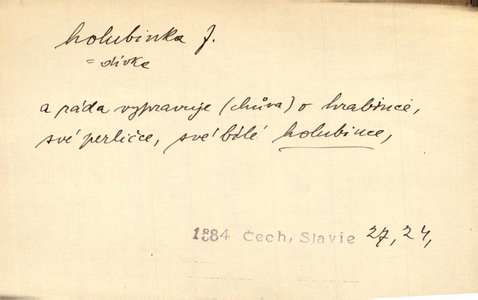 holubinka f.
= dívka
a ráda vypravuje (chůva) o hraběnce,
své perličce, své bílé holubince,
1884 Čech, Slavie 27, 24,